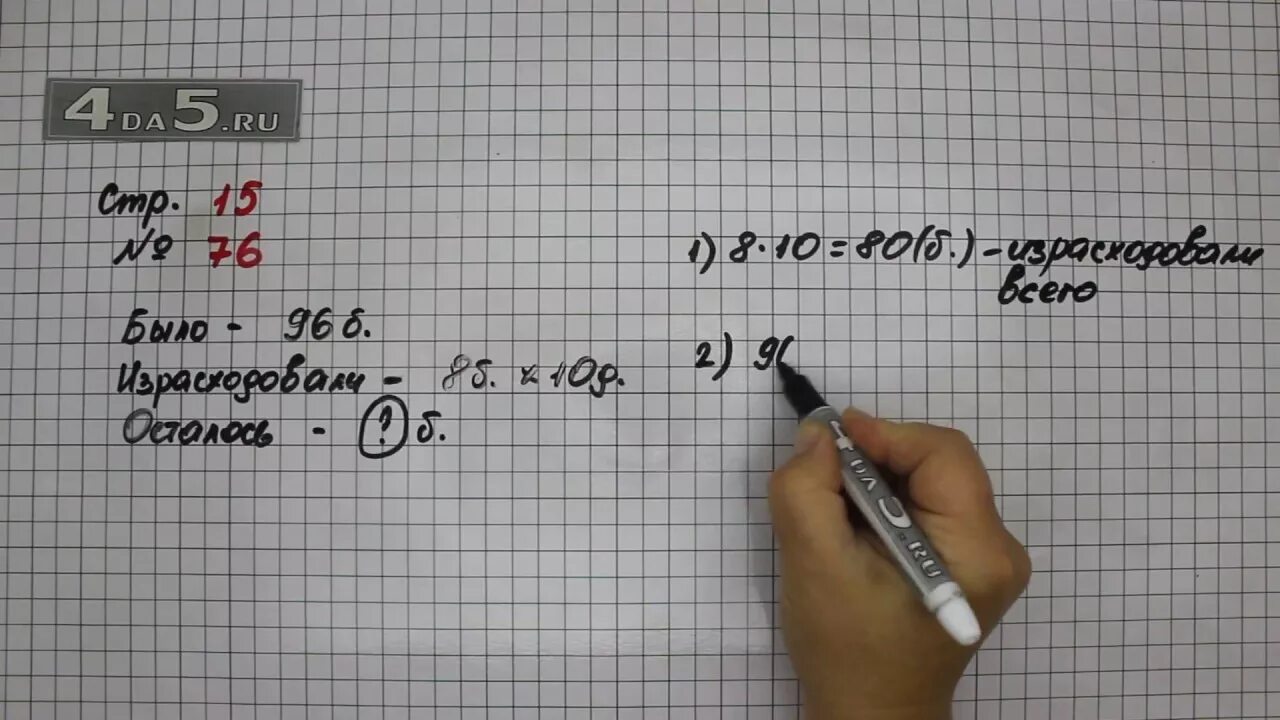 4DA5.RU
Стр. 15
№ 76
Было - 96 б.
Израсходовали - 8б. х 10д.
Осталось - ? б.
1) 8·10=80(б.) - израсходовали
всего
2) 9(
DA5.RU